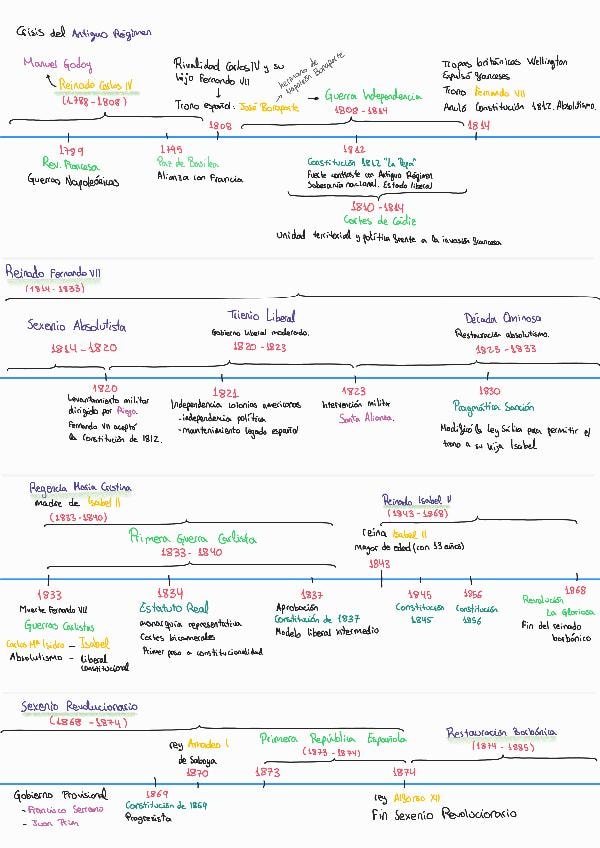 Crisis del Antiguo Régimen
Manuel Godoy
Reinado Carlos IV
(1788-1808)
Rivalidad Carlos IV y su
hijo Fernando VII
Trono español: José Bonaparte
hermano de
Napoleón Bonaparte
1808
Guerra Independencia
1808-1814
Tropas británicas Wellington
Expulsó franceses
Trono Fernando VII
Anuló Constitución 1812. Absolutismo.
1814
1789
Rev. Francesa
Guerras Napoleónicas
1795
Paz de Basilea
Alianza con Francia
1812
Constitución 1812 "La Pepa"
Fuerte contraste con Antiguo Régimen
Soberanía nacional. Estado liberal
1810-1814
Cortes de Cádiz
Unidad territorial y política frente a la invasión francesa
Reinado Fernando VII
(1814-1833)
Sexenio Absolutista
1814-1820
Trienio Liberal
Gobierno liberal moderado.
1820-1823
Década Ominosa
Restauración absolutismo.
1823-1833
1820
Levantamiento militar
dirigido por Riego.
Fernando VII aceptó
la Constitución de 1812.
1821
Independencia colonias americanas
-independencia política
-mantenimiento legado español
1823
Intervención militar
Santa Alianza.
1830
Pragmática Sanción
Modificó la Ley Sálica para permitir el
trono a su hija Isabel
Regencia María Cristina
madre de Isabel II
(1833-1840)
Primera Guerra Carlista
1833-1840
Reinado Isabel II
(1843-1868)
reina Isabel II
mayor de edad (con 13 años)
1843
1833
Muerte Fernando VII
Guerras Carlistas
Carlos Mª Isidro - Isabel
Absolutismo - Liberal
constitucional
1834
Estatuto Real
monarquía representativa
Cortes bicamerales
Primer paso a constitucionalidad
1837
Aprobación
Constitución de 1837
Modelo liberal intermedio
1845
Constitución
1845
1856
Constitución
1856
1868
Revolución
La Gloriosa
Fin del reinado
borbónico
Sexenio Revolucionario
(1868-1874)
rey Amadeo I
de Saboya
1870
Primera República Española
(1873-1874)
1873
1874
Restauración Borbónica
(1874-1885)
Gobierno Provisional
- Francisco Serrano
- Juan Prim
1869
Constitución de 1869
Progresista
rey Alfonso XII
Fin Sexenio Revolucionario